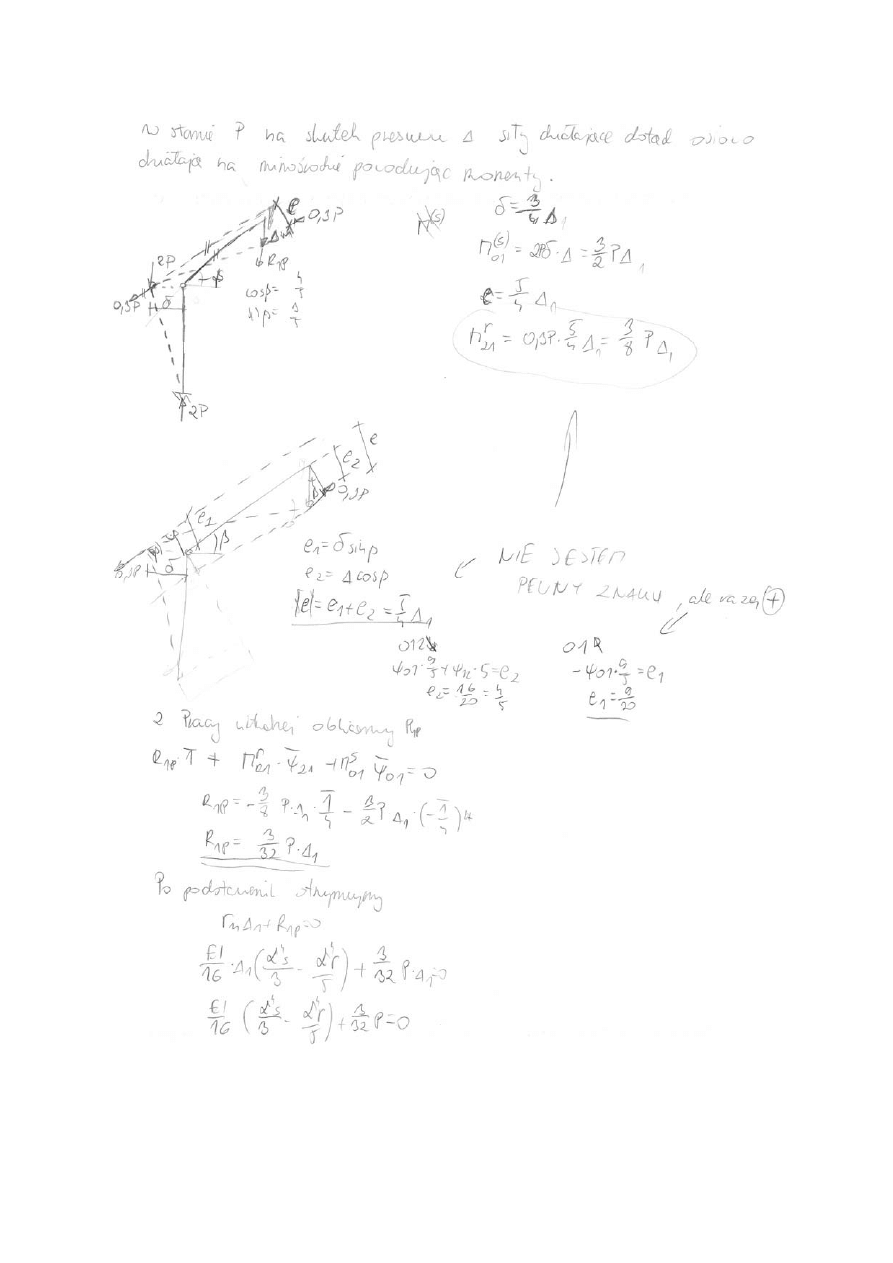 W stanie P na skutek przesuwu Δ siły działające dotąd osiowo
działają na mimośrodzie powodując momenty.
e
0,3P
Δ
2P
R1P
β
0,3P
δ
cosβ = 4/5
sinβ = 3/5
2P
δ = 3/4 Δ1
M01(s) = 2Pδ·Δ = 3/2 PΔ1
e = 5/4 Δ1
M21r = 0,3P·5/4 Δ1 = 3/8 P Δ1
e
e2
e1
Δ
0,3P
β
δ
0,3P
e1 = δ sinβ
e2 = Δ cosβ
|e| = e1 + e2 = 5/4 Δ1
NIE JESTEM
PEWNY ZNAKU, ale na zaj (+)
012
ψ01·9/5 + ψ12·5 = e2
e2 = 16/20 = 4/5
01R
-ψ01·9/5 = e1
e1 = 9/20
Z Pracy wirtualnej obliczamy R1P
R1P·1 + M21r·ψ21 + M01s ψ01 = 0
R1P = -3/8 P·Δ1·1/4 - 3/2 P Δ1·(-1/4)
R1P = 3/32 P·Δ1
Po podstawieniu otrzymujemy
r11Δ1 + R1P = 0
EI/16 ·Δ1(α's/3 - α'r/5) + 3/32 P·Δ1 = 0
EI/16 (α's/3 - α'r/5) + 3/32 P = 0